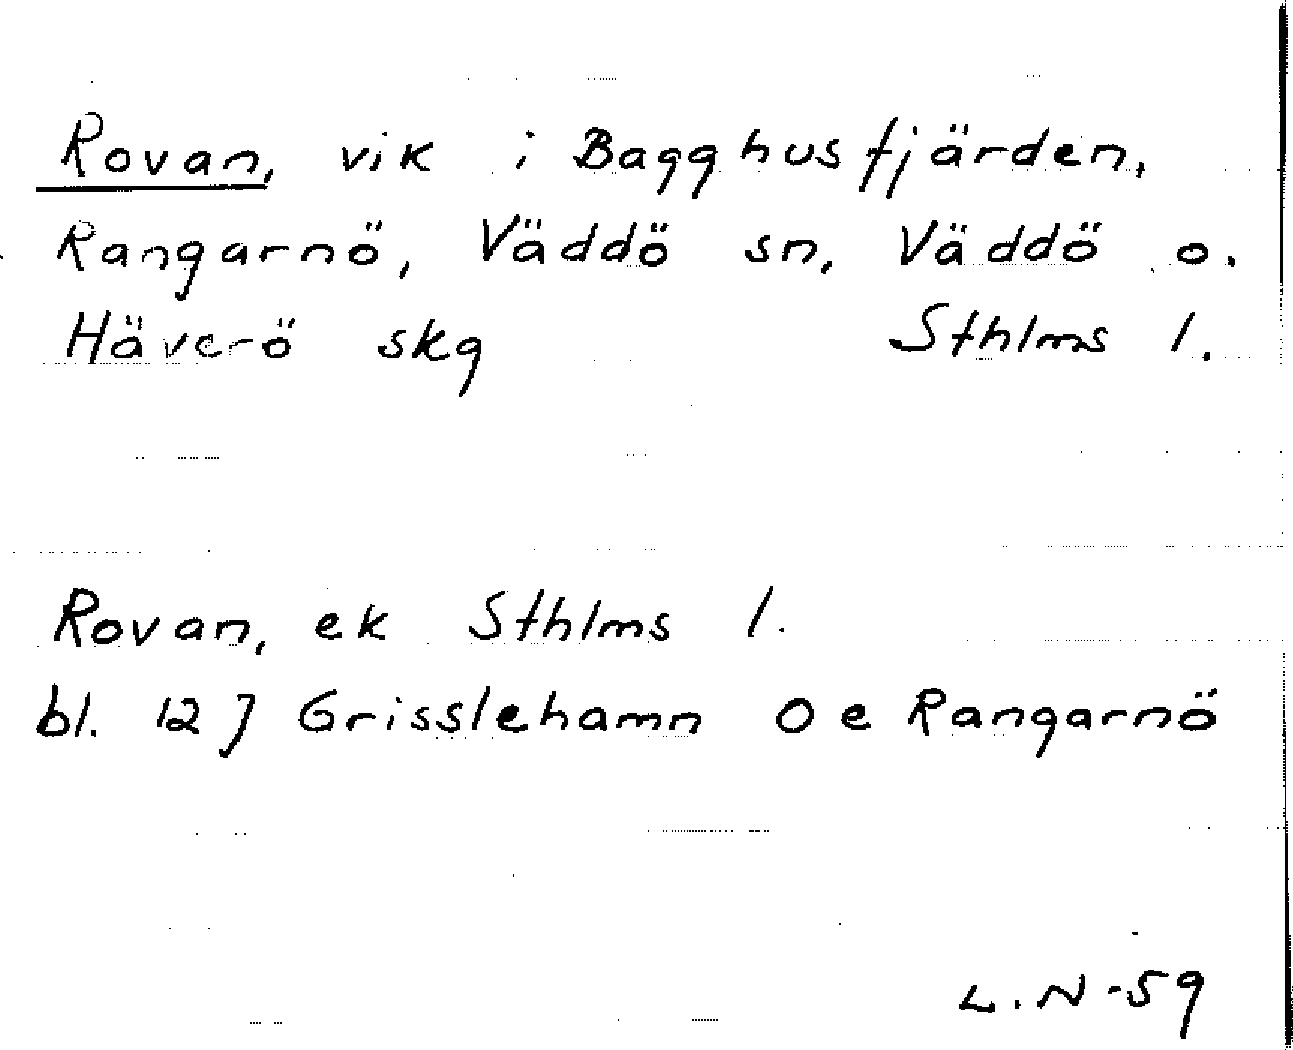 Rovan, vik i Bagghusfjärden,
Rangarnö, Väddö sn, Väddö o.
Häverö skg Sthlms l.
Rovan, ek Sthlms l.
bl. 12 J Grisslehamn O e Rangarnö
L.N-59